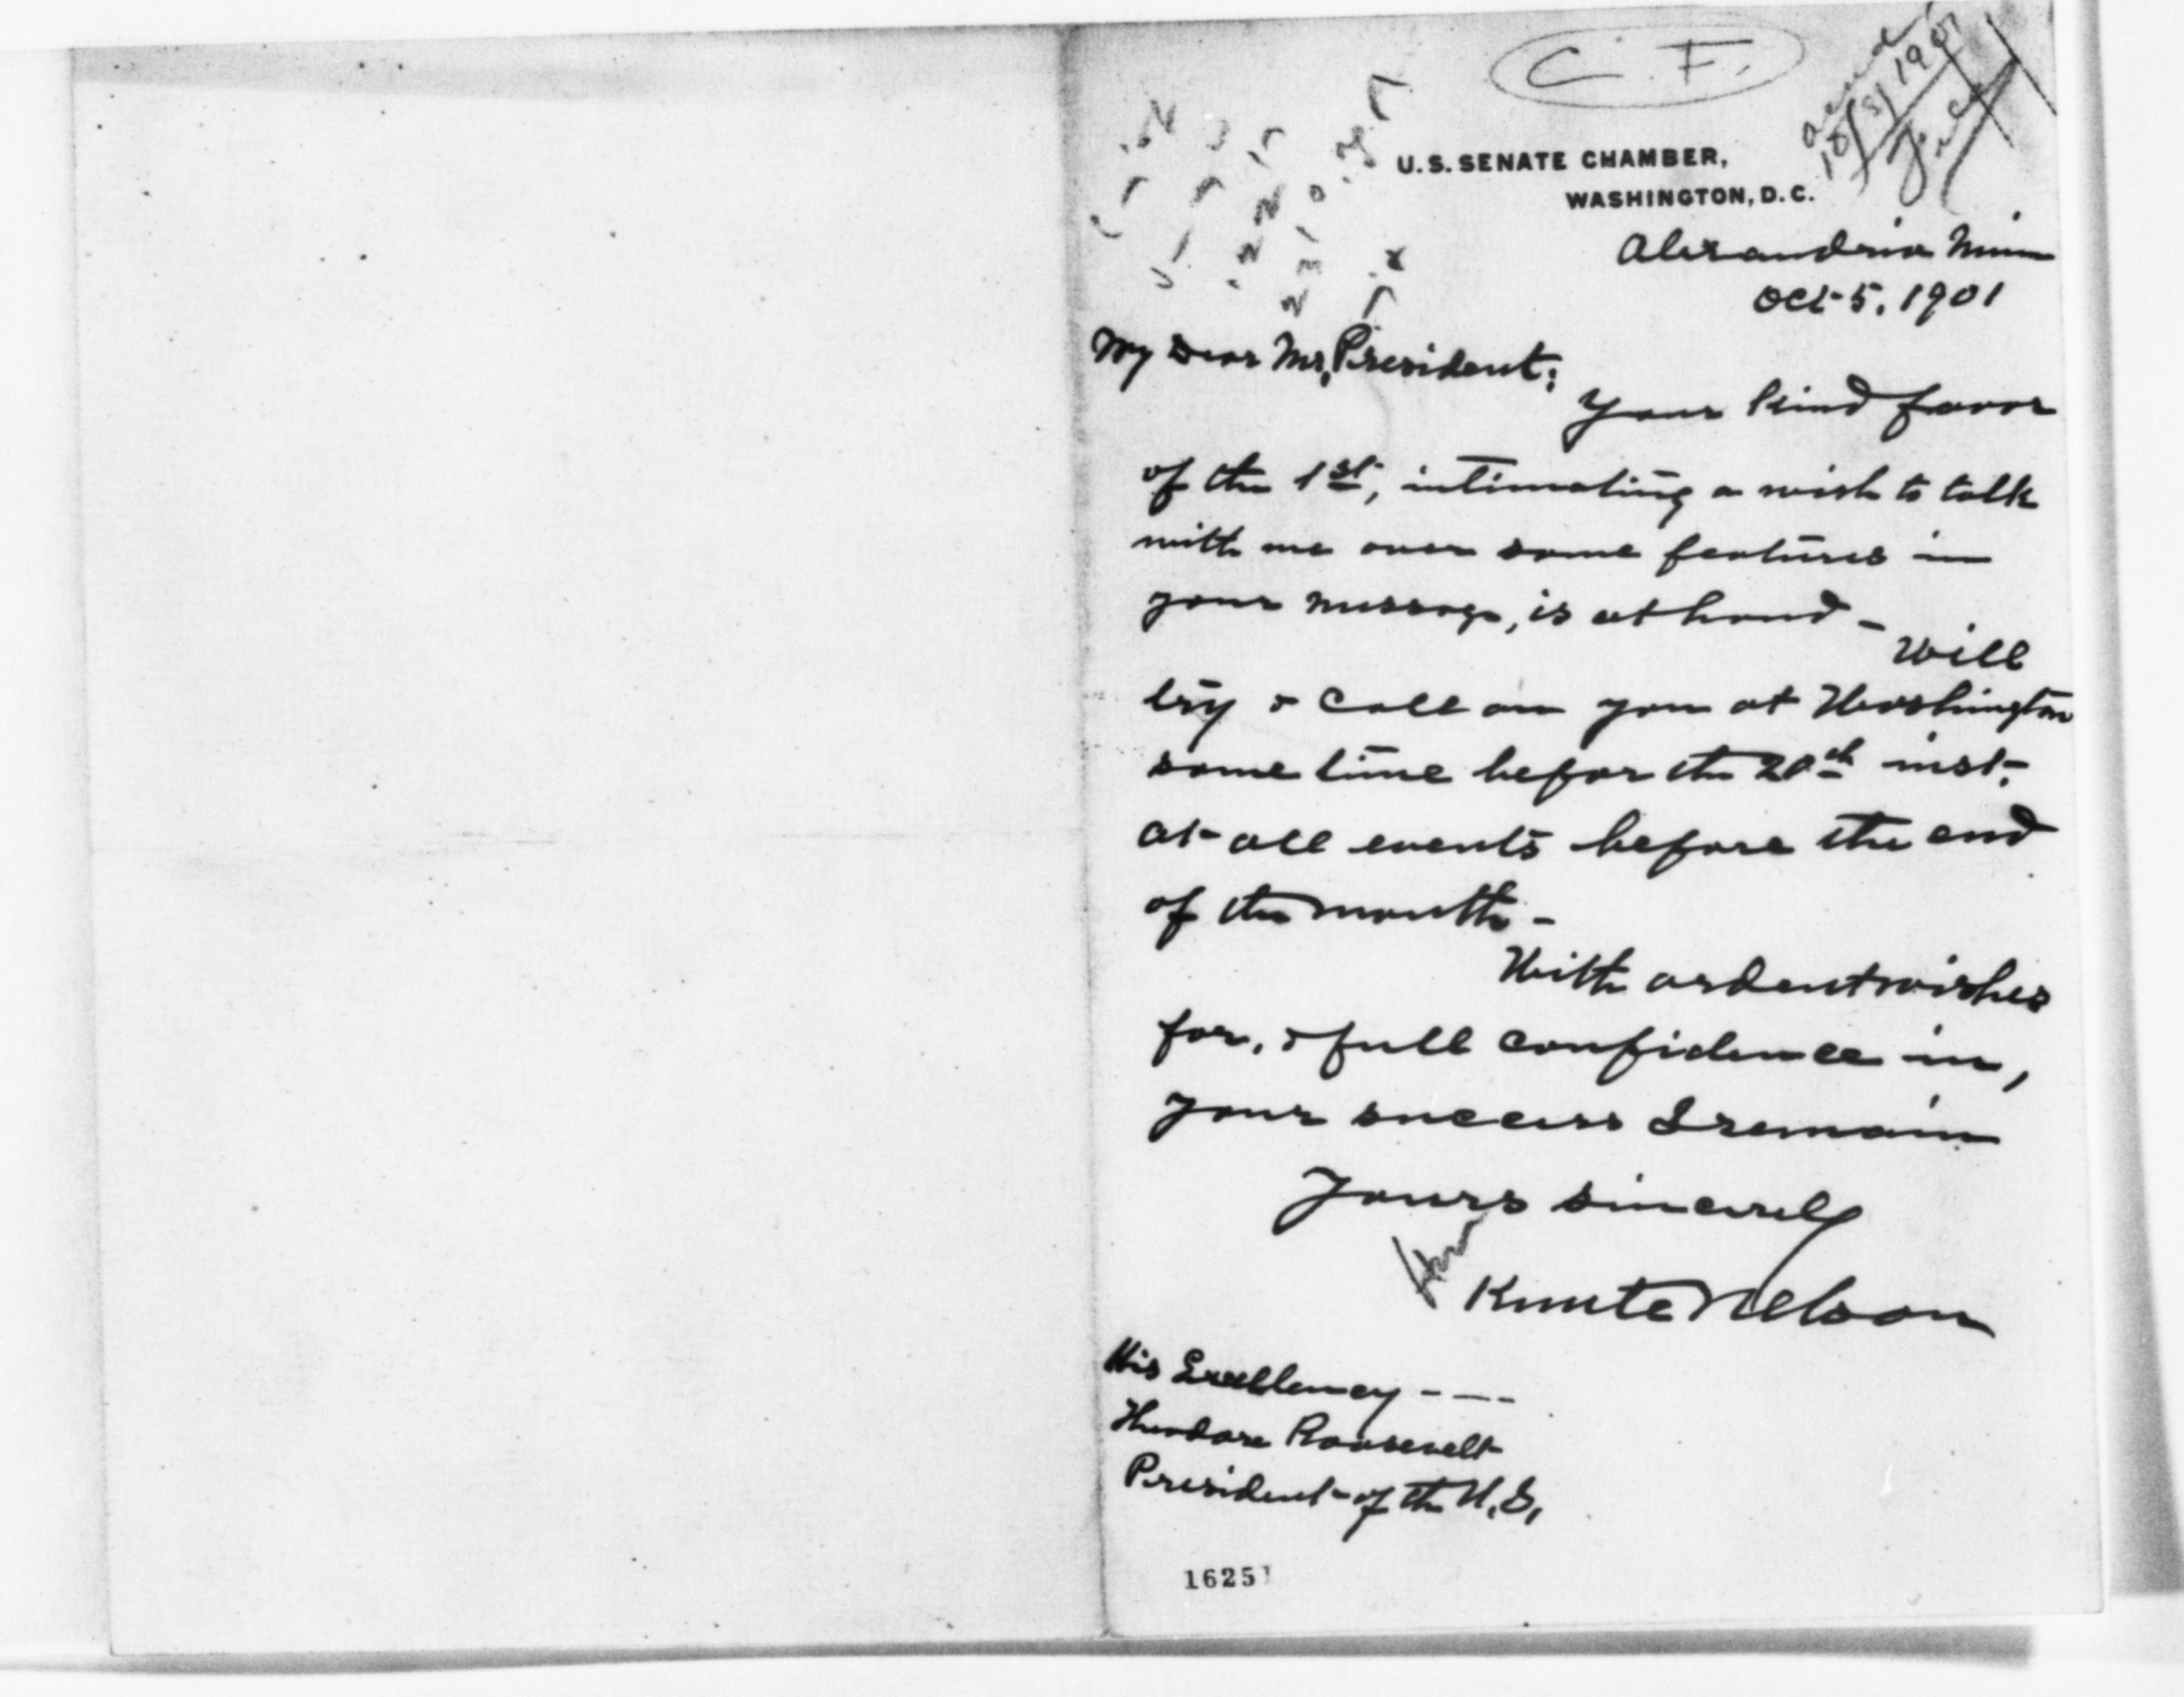 C. F.
ackd
10/8/1901
File
U.S. SENATE CHAMBER,
WASHINGTON, D.C.
Alexandria Minn
Oct 5, 1901
My Dear Mr, President:
Your kind favor
of the 1st, intimating a wish to talk
with me over some features in
your message, is at hand - Will
try & call on you at Washington
some time befor the 20th inst,
at all events before the end
of the month -
With ardent wishes
for, & full confidence in,
your success I remain
Yours sincerely
Knute Nelson
His Excellency - - -
Theodore Roosevelt
President of the U.S,
16251